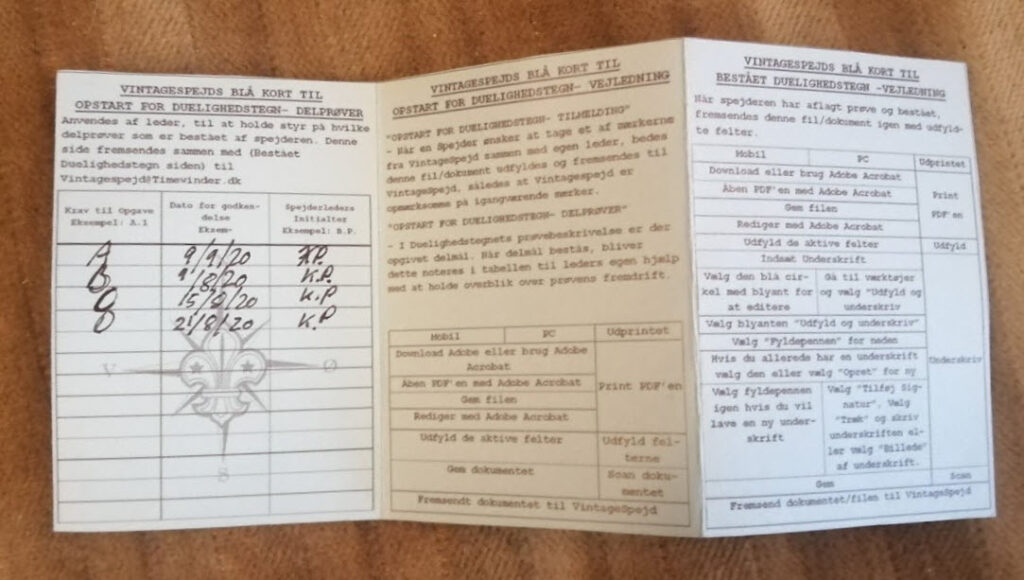 VINTAGESPEJDS BLÅ KORT TIL
OPSTART FOR DUELIGHEDSTEGN- DELPRØVER
Anvendes af leder, til at holde styr på hvilke
delprøver som er bestået af spejderen. Denne
side fremsendes sammen med (Bestået
Duelighedstegn siden) til
Vintagespejd@Timevinder.dk
Krav til Opgave
Eksempel: A.1
Dato for godken-
delse
Eksem-
Spejderleders
Initialter
Eksempel: B.P.
A 9/1/20 K.P.
B 1/8/20 K.P.
15/8/20 K.P
21/8/20 K.P
V
Ø
S
VINTAGESPEJDS BLÅ KORT TIL
OPSTART FOR DUELIGHEDSTEGN- VEJLEDNING
"OPSTART FOR DUELIGHEDSTEGN- TILMELDING"
- Når en Spejder ønsker at tage et af mærkerne
fra VintageSpejd sammen med egen leder, bedes
denne fil/dokument udfyldes og fremsendes til
VintageSpejd, således at Vintagespejd er
opmærksomme på igangværende mærker.
"OPSTART FOR DUELIGHEDSTEGN- DELPRØVER"
- I Duelighedstegnets prøvebeskrivelse er der
opgivet delmål. Når delmål bestås, bliver
dette noteres i tabellen til leders egen hjælp
med at holde overblik over prøvens fremdrift.
Mobil PC Udprintet
Download Adobe eller brug Adobe
Acrobat
Åben PDF'en med Adobe Acrobat
Print PDF'en
Gem filen
Rediger med Adobe Acrobat
Udfyld de aktive felter
Udfyld fel-
terne
Gem dokumentet
Scan doku-
mentet
Fremsendt dokumentet til VintageSpejd
VINTAGESPEJDS BLÅ KORT TIL
BESTÅET DUELIGHEDSTEGN -VEJLEDNING
Når spejderen har aflagt prøve og bestået,
fremsendes denne fil/dokument igen med udfyld-
te felter.
Mobil PC Udprintet
Download eller brug Adobe Acrobat
Åben PDF'en med Adobe Acrobat
Gem filen
Rediger med Adobe Acrobat
Print
PDF'en
Udfyld de aktive felter
Udfyld
Indsæt Underskrift
Vælg den blå cir-
kel med blyant for
at editere
Gå til værktøjer
og vælg "Udfyld og
underskriv
Vælg blyanten "Udfyld og underskriv"
Vælg "Fyldepennen" for neden
Hvis du allerede har en underskrift
vælg den eller vælg "Opret" for ny
Underskriv
Vælg fyldepennen
igen hvis du vil
lave en ny under-
skrift
Vælg "Tilføj Sig-
natur". Vælg
"Træk" og skriv
underskriften el-
ler vælg "Billede"
af underskrift.
Gem
Scan
Fremsend dokumentet/filen til VintageSpejd